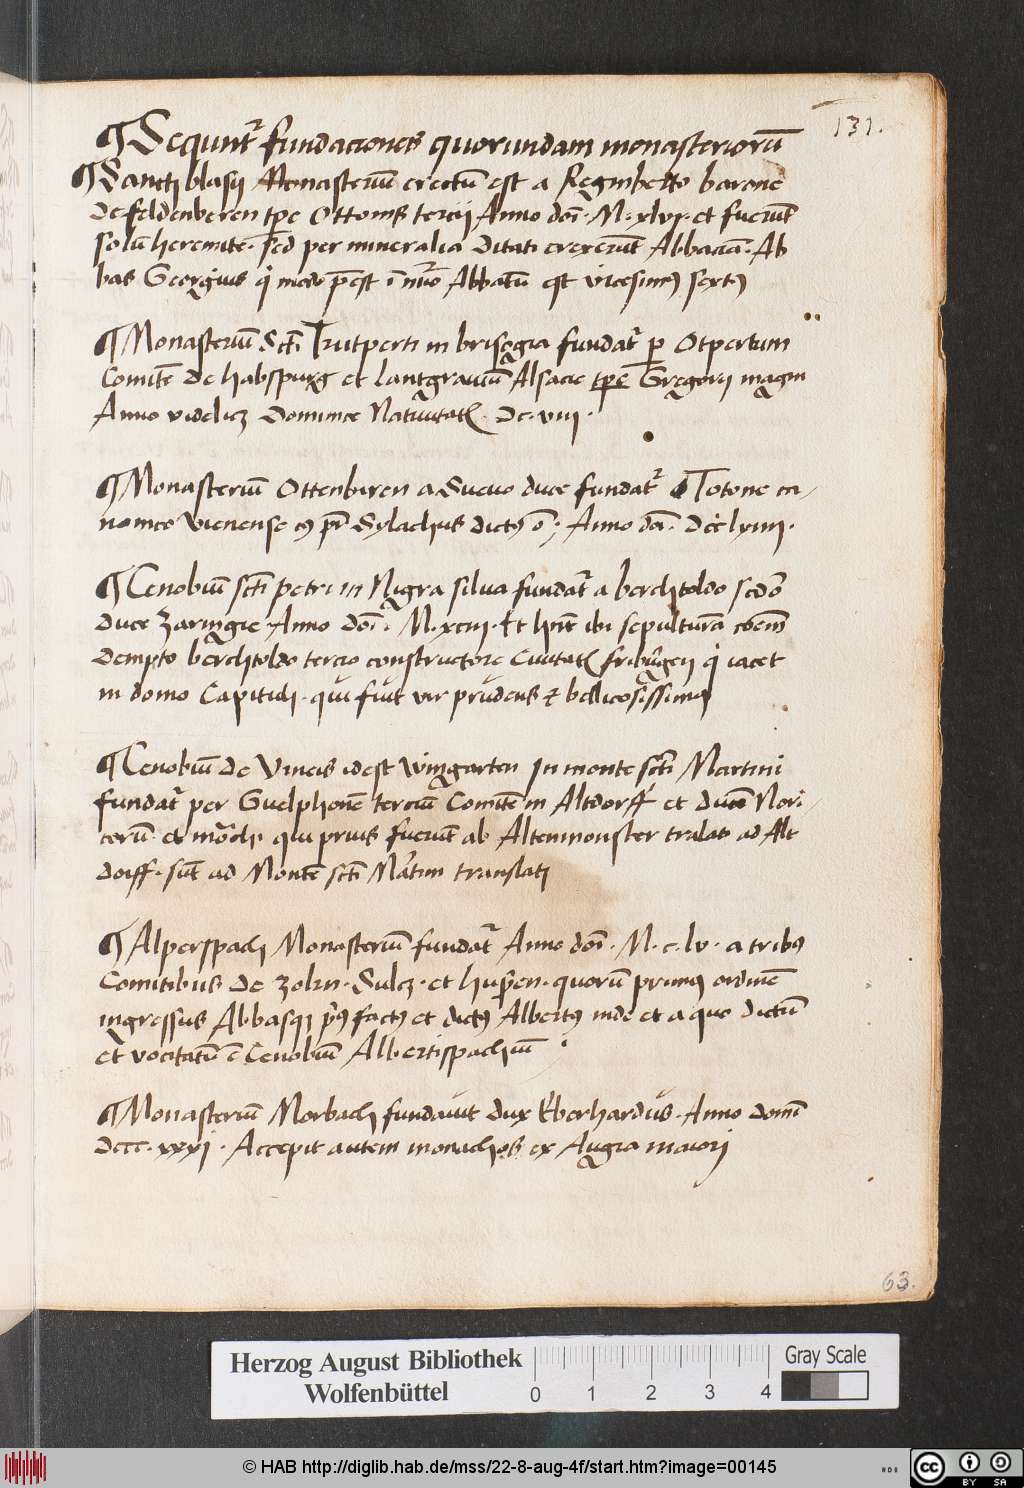 131.
¶ Sequntr̃ fundaciones quorundam monasteriorū
¶ Sancti blasij Monasteriū erectū est a Reginberto barone
De feldenberen tp̄e Ottonis tercij Anno doī. M. xlvj. et fuerūt
solū heremite. sed per mineralia ditati erexerūt Abbaciā. Ab
bas Georgius q̇ modo p̄est ī nūo Abbatū est vicesimꝯ sextꝯ
¶ Monasteriū Scti Trutperti in brisegia fundatr̃ p Otpertum
Comitē de habspurg et lantgrauiū Alsacie tp̄e Gregorij magni
Anno videlicꝫ Dominice Natiuitatꝭ. Dc. viij.
¶ Monasteriū Ottenbiren a Sueuo duce fundatr̃ Totone ca-
nonico vienense cꝯ pr̄ Sylachus dictꝯ ē; Anno doī. Dcclxiiij.
¶ Cenobiū scti petri in Nigra silua fundatr̃ a berchtoldo scdo
duce zaringie Anno doī. M. xciij. Et hn̄t ibi sepulturā oēm
dempto berchtoldo tercio constructore Ciuitatꝭ friburgen̄ q̇ iacet
in domo Capituli. qui fuit vir prudens ⁊ bellicosissimꝯ
¶ Cenobiū de Vineis id est Wingarten In monte scti Martini
fundatr̃ per Guelphonē terciū Comitē in Altdorff et ducē Nori-
corū. et mōchi qui prius fuerūt ab Altenmonster tralati ad Alt
dorff. sūt ad Montē scti Martini translati
¶ Alperspach Monasteriū fundatr̃ Anno doī. M. c. lv. a tribꝯ
Comitibus de zolrn. Sulcz. et husen. quorū primꝯ ordinē
ingressus Abbasqꝫ p̄ꝯ factꝯ et dictꝯ Albertꝯ inde et a quo dictū
et vocitatū ē Cenobiū Albertispachiū
¶ Monasteriū Morbach fundauit dux Eberhardus. Anno domī
Dccc. xxxj. Accepit autem monachos ex Augia maiori
63.
Herzog August Bibliothek
Wolfenbüttel
0 1 2 3 4
Gray Scale
© HAB http://diglib.hab.de/mss/22-8-aug-4f/start.htm?image=00145
HAB
cc BY SA